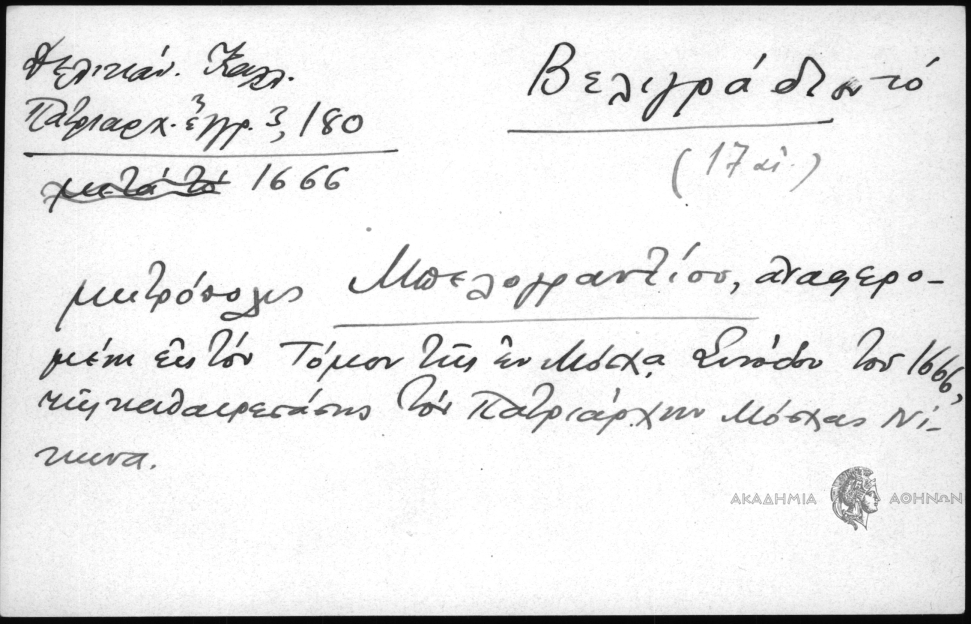 Δελικάν. Καλλ.
Πατριαρχ. ἔγγρ. 3, 180
μετὰ τὸ 1666
Βελιγράδιον τό
(17 αἰ.)
μητρόπολις Μπελογραντίου, ἀναφερο-
μένη εἰς τὸν Τόμον τῆς ἐν Μόσχᾳ Συνόδου τοῦ 1666,
τῆς καθαιρεσάσης τὸν Πατριάρχην Μόσχας Νί-
κωνα.
ΑΚΑΔΗΜΙΑ ΑΘΗΝΩΝ